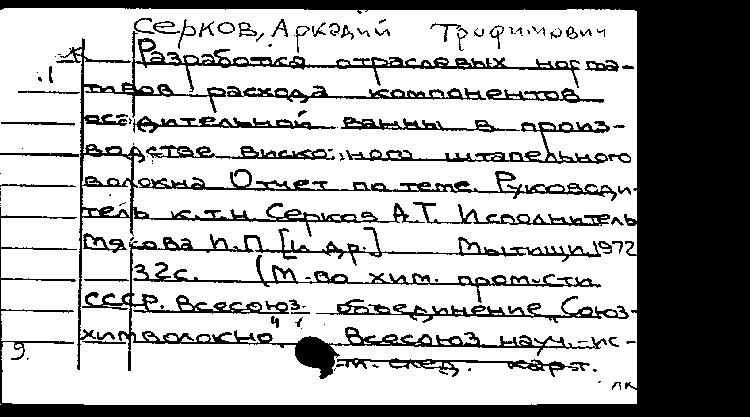 Серков, Аркадий Трофимович
Разработка отраслевых норма-
тивов расхода компонентов
осадительной ванны в произ-
водстве вискозного штапельного
волокна Отчет по теме. Руководи-
тель к.т.н. Серков А.Т. Исполнитель
Мясова Н.П. [и др.] Мытищи, 1972
32с. (М-во хим. пром-сти
СССР. Всесоюз. объединение „Союз-
химволокно". Всесоюз науч.-ис-
9.
след. карт.
лк